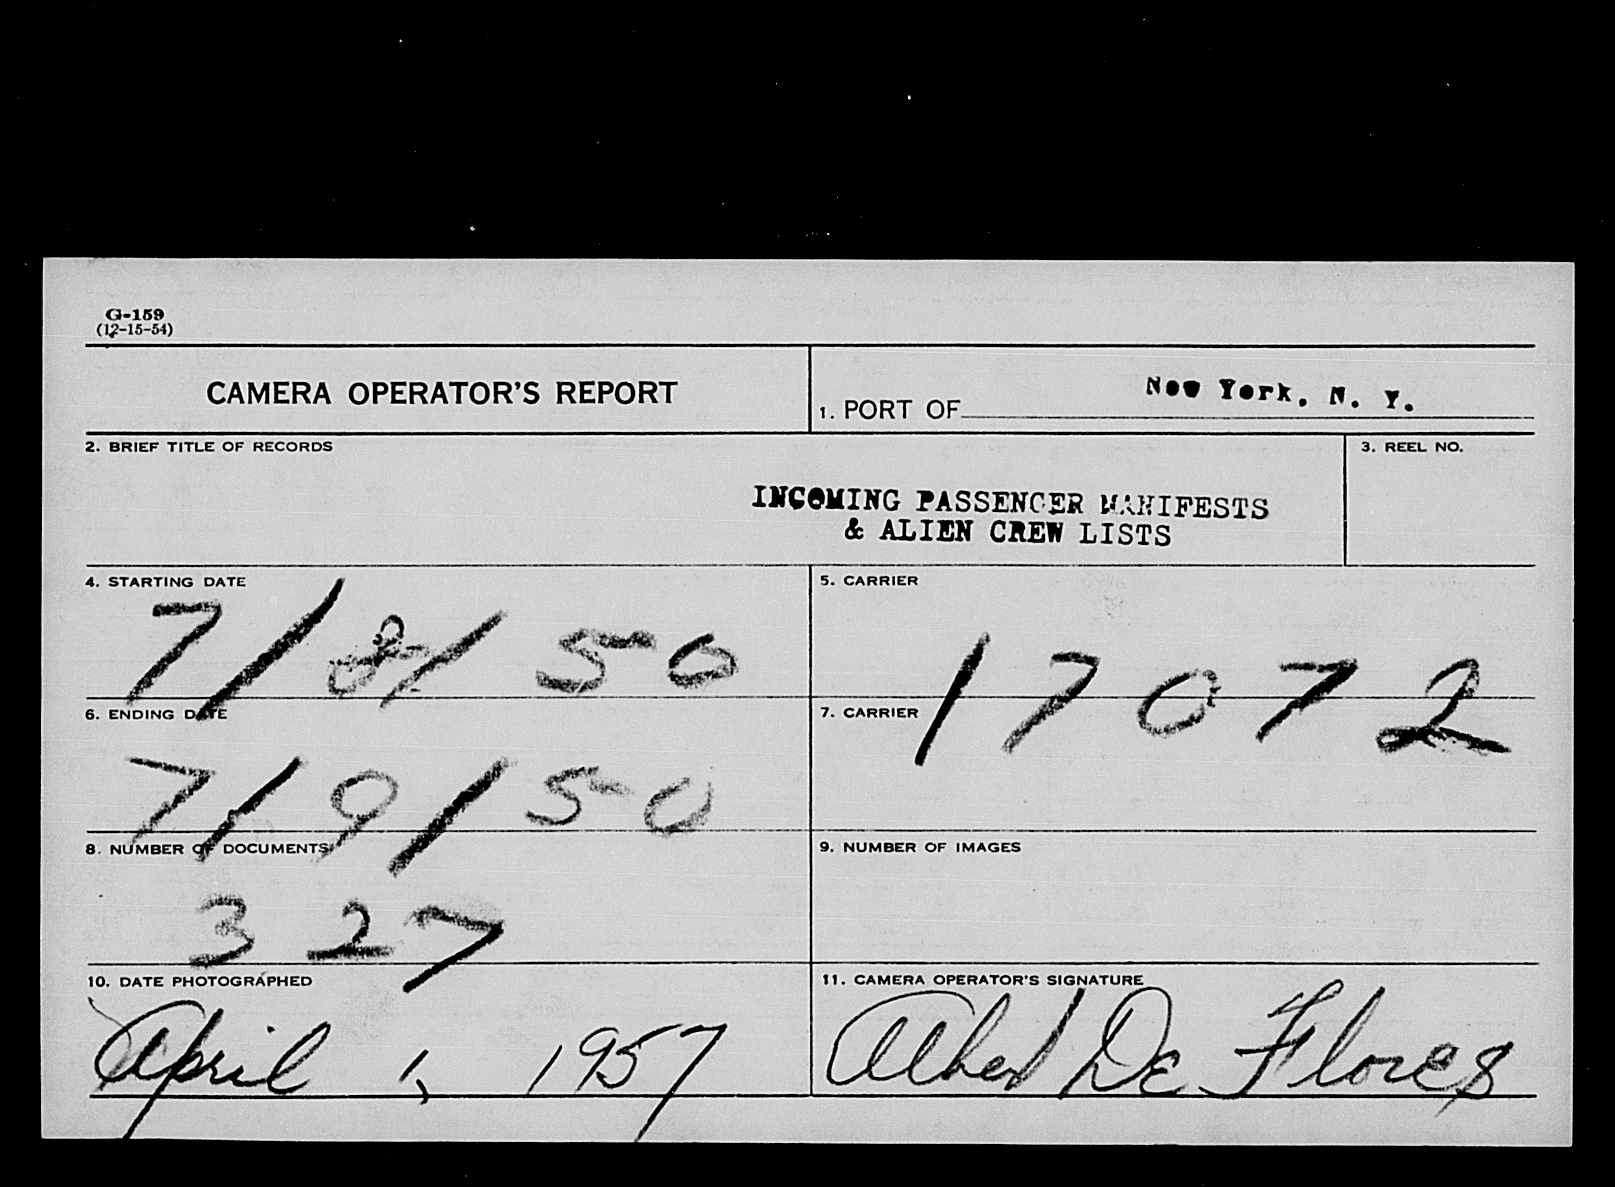 G-159
(12-15-54)
CAMERA OPERATOR'S REPORT
1. PORT OF New York, N. Y.
2. BRIEF TITLE OF RECORDS
3. REEL NO.
INCOMING PASSENGER MANIFESTS
& ALIEN CREW LISTS
4. STARTING DATE
7/8/50
5. CARRIER
17072
6. ENDING DATE
7/9/50
7. CARRIER
8. NUMBER OF DOCUMENTS
327
9. NUMBER OF IMAGES
10. DATE PHOTOGRAPHED
April 1, 1957
11. CAMERA OPERATOR'S SIGNATURE
Albert De Flores